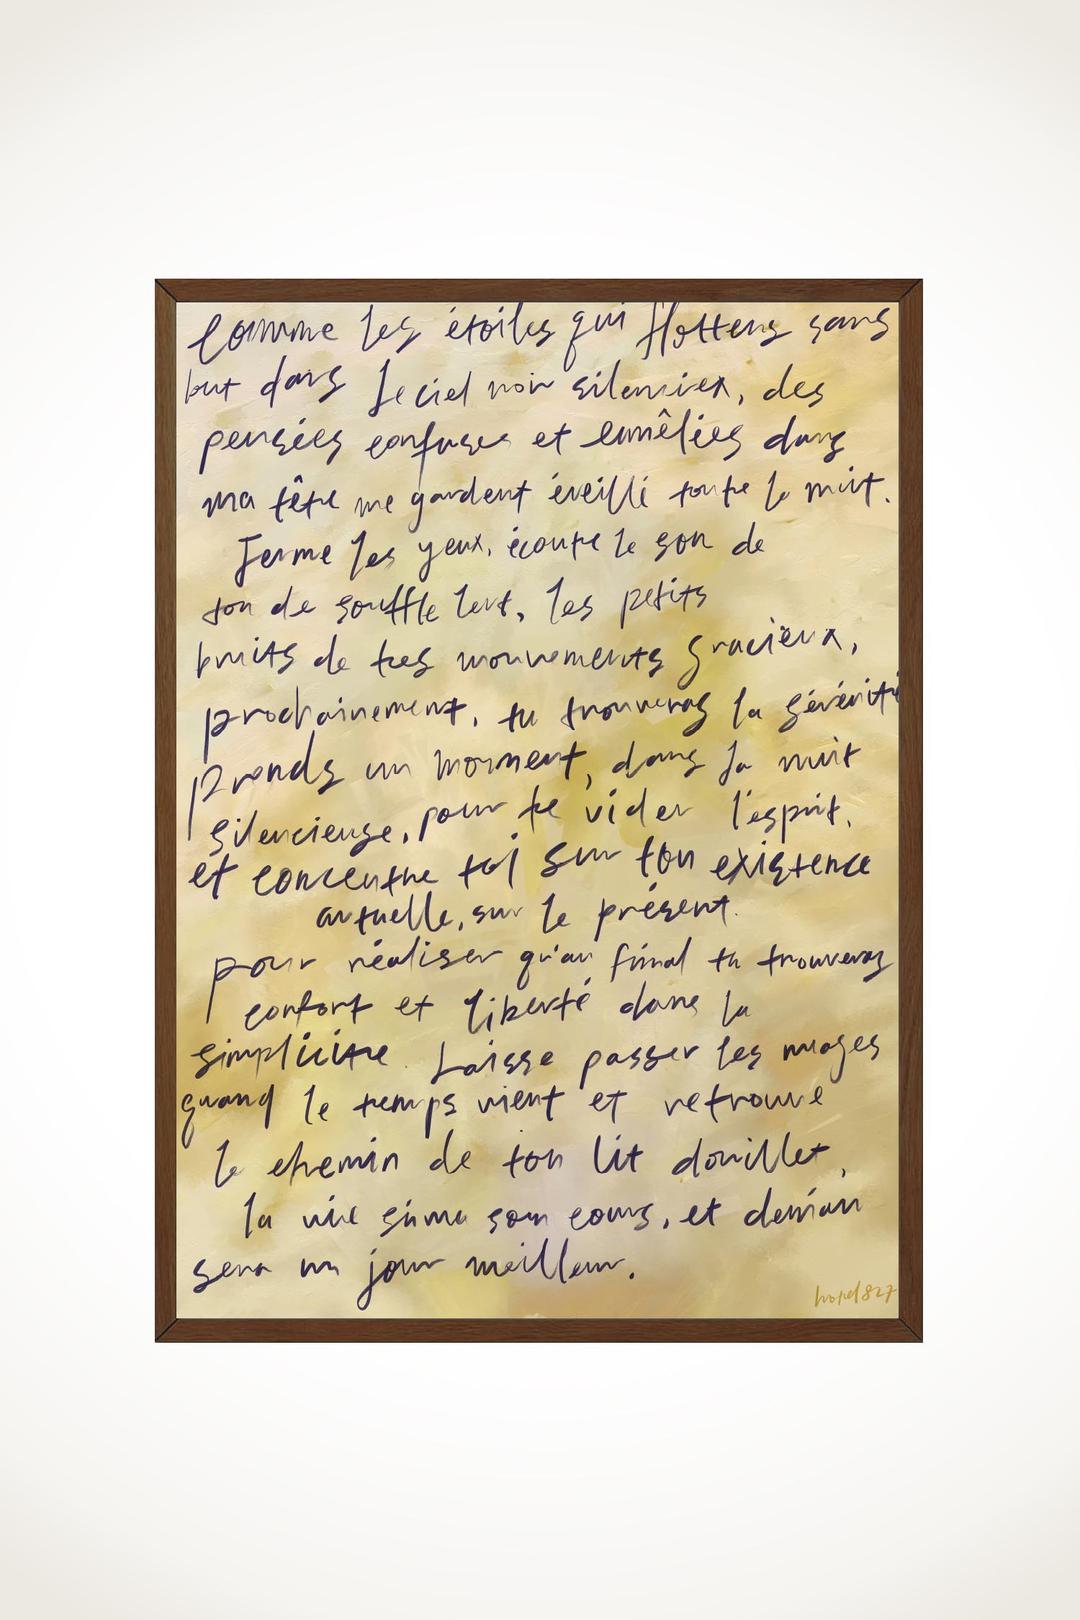 Comme les étoiles qui flottens sans
but dans le ciel noir silencieux, des
pensées confuses et emêlées dans
ma tête me gardent éveillé toute la nuit.
Ferme les yeux, écoute le son de
ton de souffle lent, les petits
bruits de tes mouvements gracieux,
prochainement, tu trouveras la sérénité
prends un moment, dans la nuit
silencieuse, pour te vider l'esprit,
et concentre toi sur ton existence
actuelle, sur le présent.
pour réaliser qu'au final tu trouveras
confort et liberté dans la
simplicitre Laisse passer les nuages
quand le temps vient et retrouve
le chemin de ton lit douillet,
la vie suivra son cours, et demain
sera un jour meilleur.